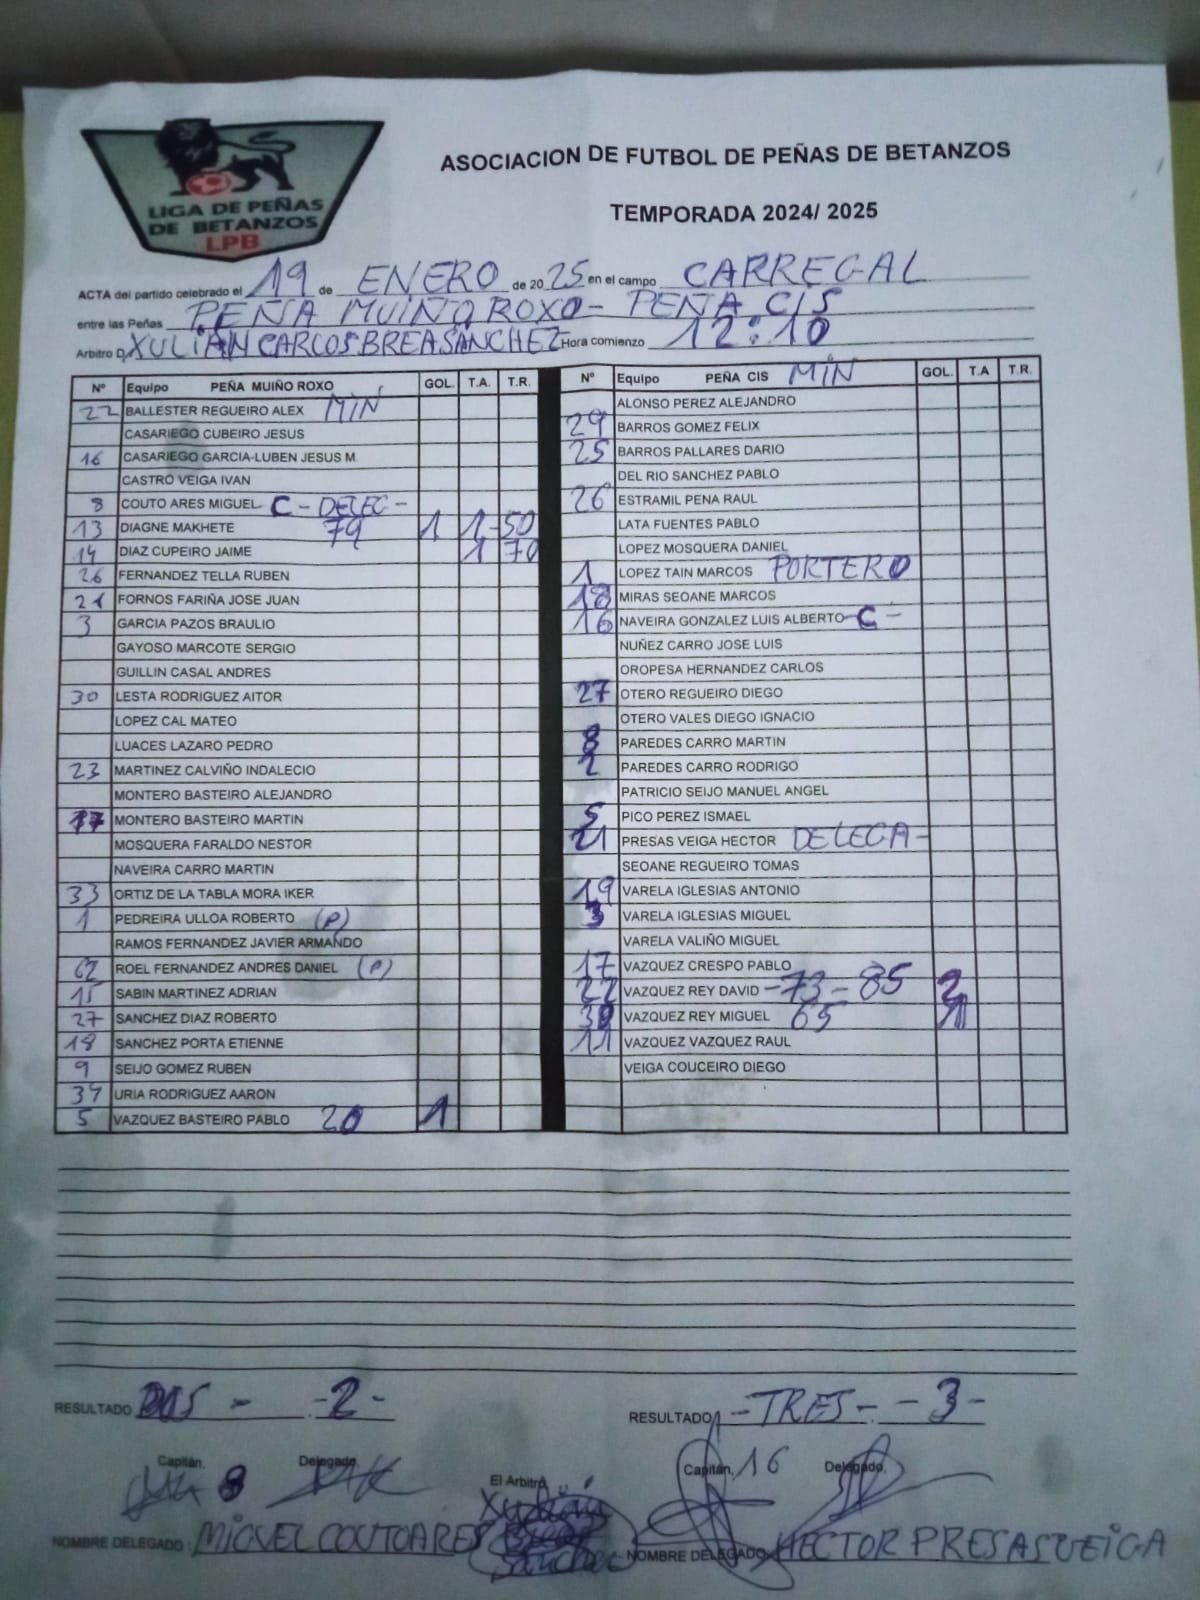 LIGA DE PEÑAS
DE BETANZOS
LPB
ASOCIACION DE FUTBOL DE PEÑAS DE BETANZOS
TEMPORADA 2024/ 2025
ACTA del partido celebrado el 19 de ENERO de 2025 en el campo CARREGAL
entre las Peñas PEÑA MUIÑO ROXO - PEÑA CIS
Arbitro D. XULIAN CARLOS BREA SANCHEZ Hora comienzo 12:10
Nº Equipo PEÑA MUIÑO ROXO GOL. T.A. T.R.
22 BALLESTER REGUEIRO ALEX MIN
CASARIEGO CUBEIRO JESUS
16 CASARIEGO GARCIA-LUBEN JESUS M.
CASTRO VEIGA IVAN
8 COUTO ARES MIGUEL C - DELEG -
13 DIAGNE MAKHETE 79 1 1-50
14 DIAZ CUPEIRO JAIME 1 70
26 FERNANDEZ TELLA RUBEN
21 FORNOS FARIÑA JOSE JUAN
3 GARCIA PAZOS BRAULIO
GAYOSO MARCOTE SERGIO
GUILLIN CASAL ANDRES
30 LESTA RODRIGUEZ AITOR
LOPEZ CAL MATEO
LUACES LAZARO PEDRO
23 MARTINEZ CALVIÑO INDALECIO
MONTERO BASTEIRO ALEJANDRO
17 MONTERO BASTEIRO MARTIN
MOSQUERA FARALDO NESTOR
NAVEIRA CARRO MARTIN
33 ORTIZ DE LA TABLA MORA IKER
1 PEDREIRA ULLOA ROBERTO (P)
RAMOS FERNANDEZ JAVIER ARMANDO
62 ROEL FERNANDEZ ANDRES DANIEL (P)
15 SABIN MARTINEZ ADRIAN
27 SANCHEZ DIAZ ROBERTO
18 SANCHEZ PORTA ETIENNE
9 SEIJO GOMEZ RUBEN
URIA RODRIGUEZ AARON
5 VAZQUEZ BASTEIRO PABLO 20 1
Nº Equipo PEÑA CIS MIN GOL. T.A T.R.
ALONSO PEREZ ALEJANDRO
29 BARROS GOMEZ FELIX
25 BARROS PALLARES DARIO
DEL RIO SANCHEZ PABLO
26 ESTRAMIL PENA RAUL
LATA FUENTES PABLO
LOPEZ MOSQUERA DANIEL
1 LOPEZ TAIN MARCOS PORTERO
18 MIRAS SEOANE MARCOS
16 NAVEIRA GONZALEZ LUIS ALBERTO - C -
NUÑEZ CARRO JOSE LUIS
OROPESA HERNANDEZ CARLOS
27 OTERO REGUEIRO DIEGO
OTERO VALES DIEGO IGNACIO
8 PAREDES CARRO MARTIN
2 PAREDES CARRO RODRIGO
PATRICIO SEIJO MANUEL ANGEL
5 PICO PEREZ ISMAEL
21 PRESAS VEIGA HECTOR DELEGA -
SEOANE REGUEIRO TOMAS
19 VARELA IGLESIAS ANTONIO
3 VARELA IGLESIAS MIGUEL
VARELA VALIÑO MIGUEL
17 VAZQUEZ CRESPO PABLO
22 VAZQUEZ REY DAVID - 73 - 85 2
30 VAZQUEZ REY MIGUEL 65 1
11 VAZQUEZ VAZQUEZ RAUL
VEIGA COUCEIRO DIEGO
RESULTADO DOS - - 2 -
RESULTADO - TRES - - 3 -
Capitán, 8 Delegado,
El Arbitro
Xulian
Brea
Sánchez
Capitán, 16 Delegado,
NOMBRE DELEGADO : MIGUEL COUTO ARES
NOMBRE DELEGADO HECTOR PRESAS VEIGA